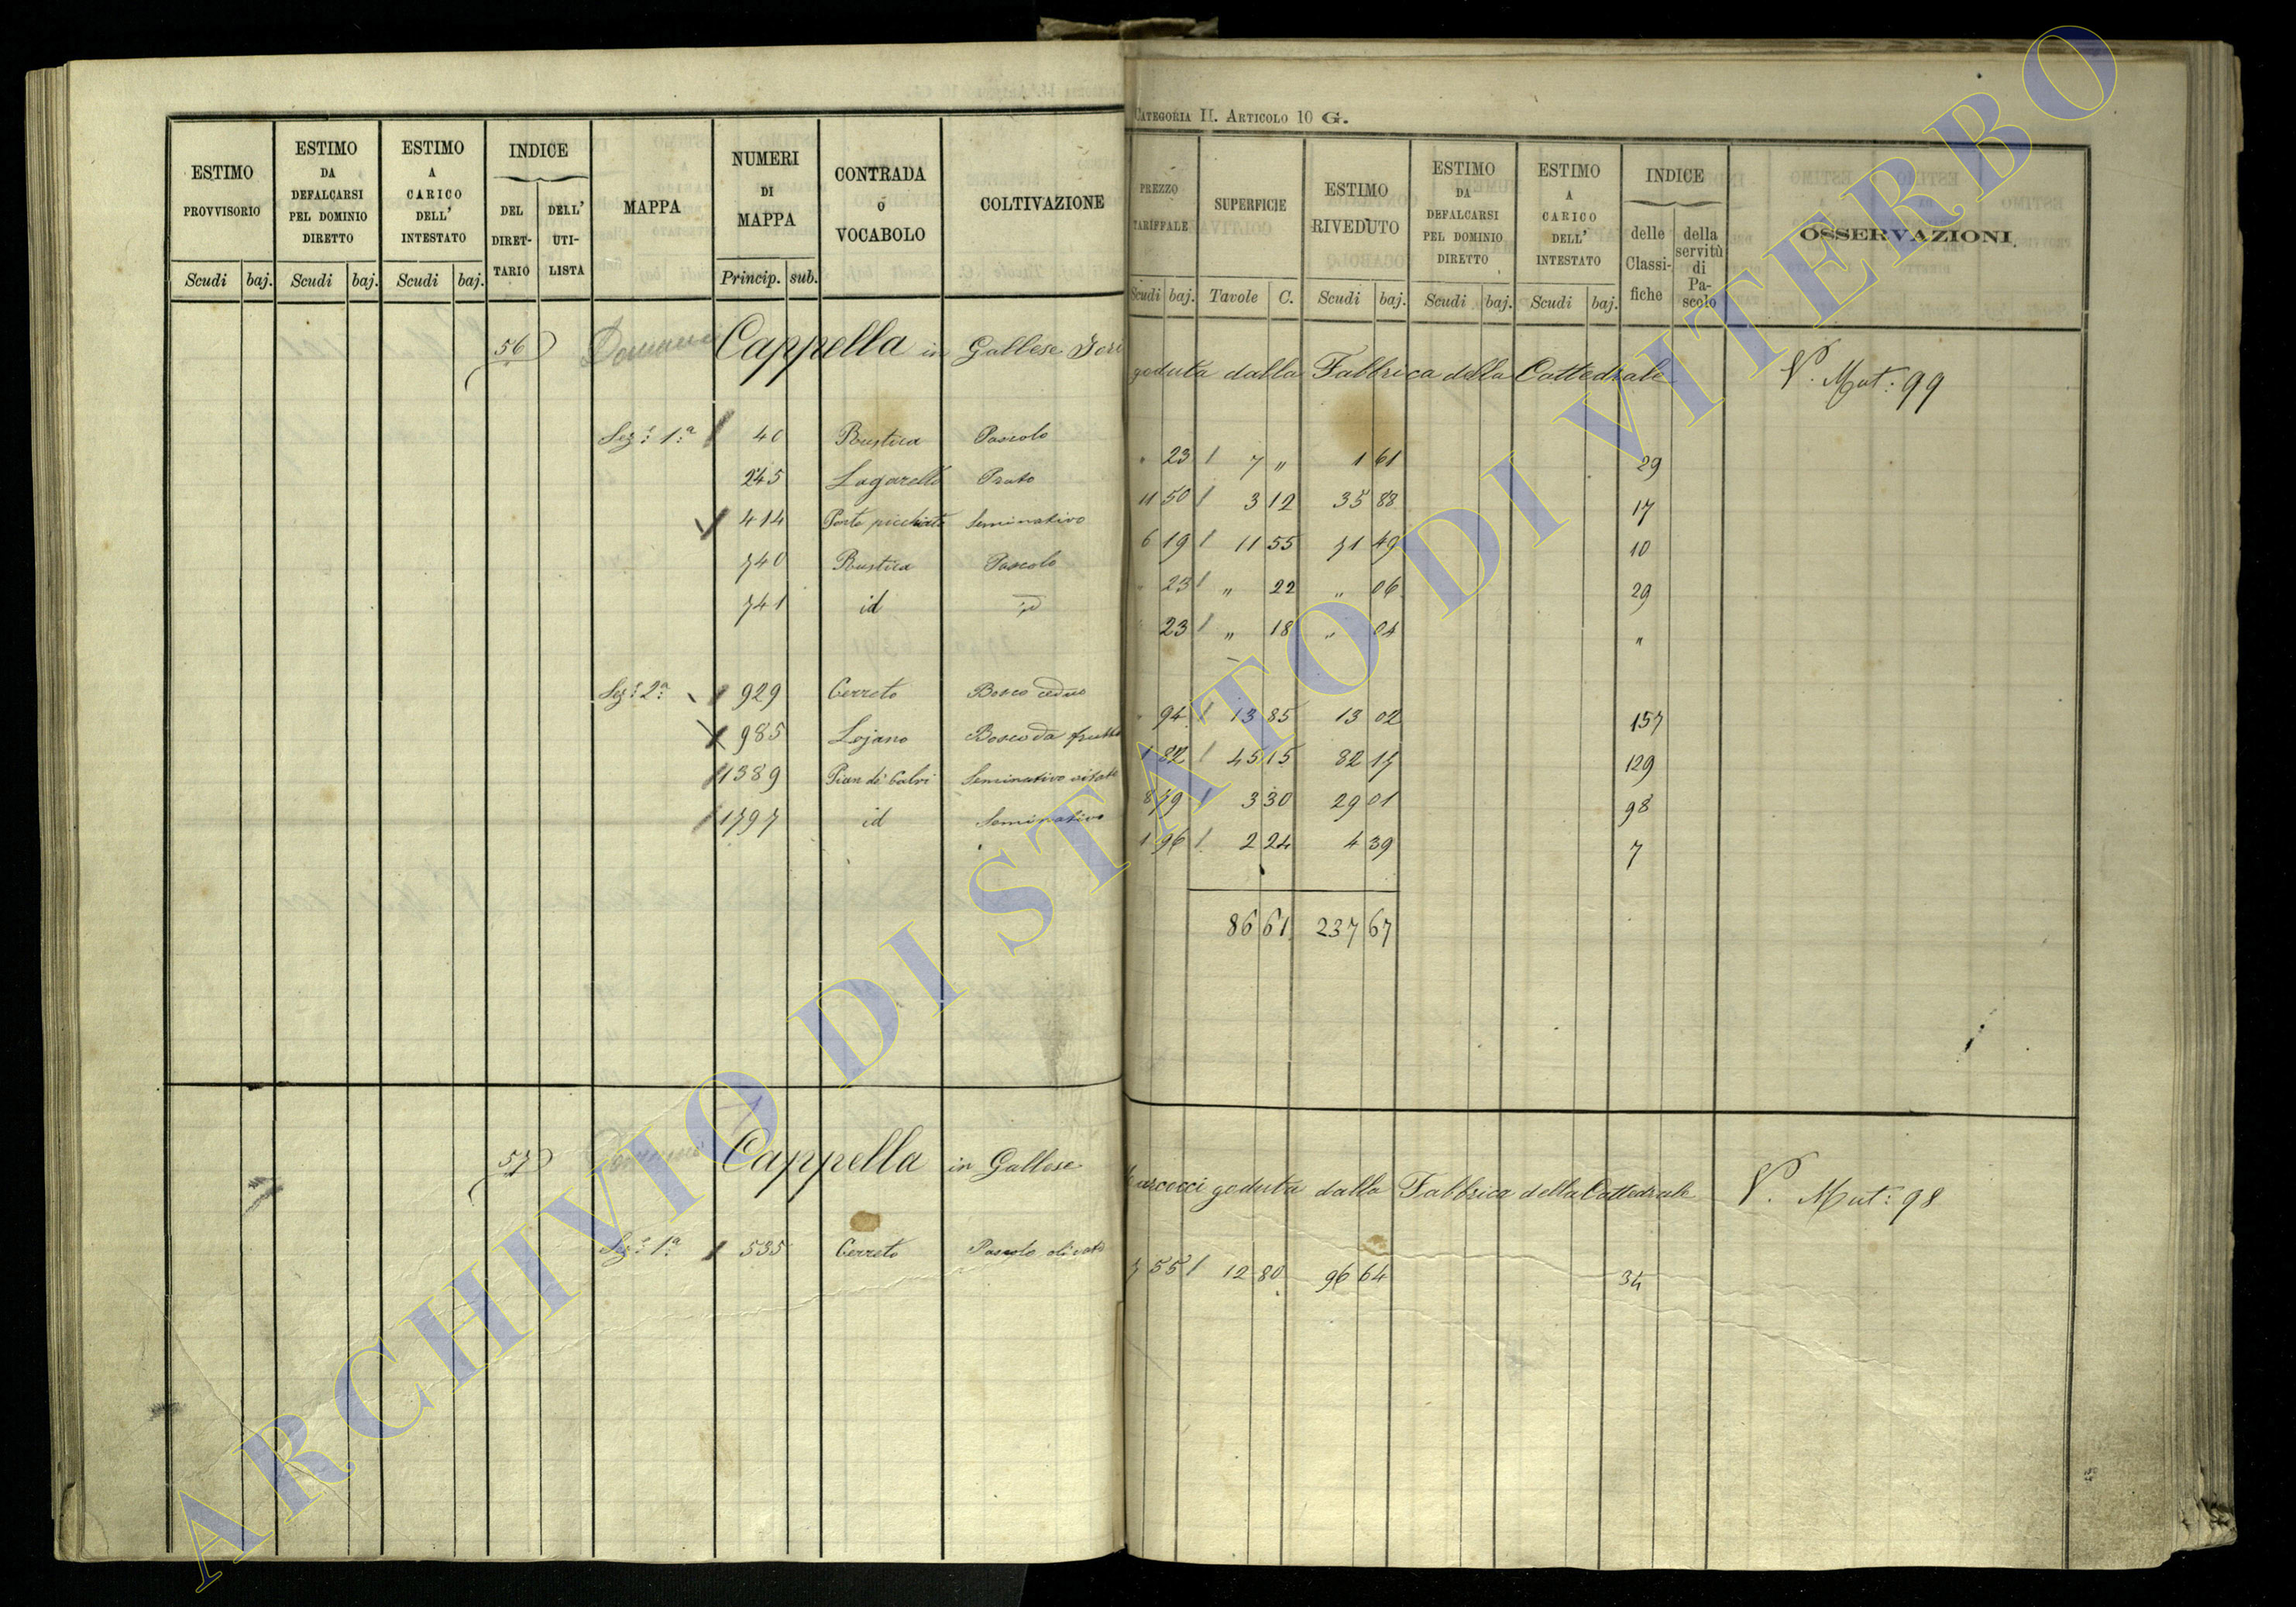 CATEGORIA II. ARTICOLO 10 G.
ESTIMO PROVVISORIO Scudi baj.
ESTIMO DA DEFALCARSI PEL DOMINIO DIRETTO Scudi baj.
ESTIMO A CARICO DELL' INTESTATO Scudi baj.
INDICE DEL DIRET-TARIO DELL' UTI-LISTA
MAPPA
NUMERI DI MAPPA Princip. sub.
CONTRADA o VOCABOLO
COLTIVAZIONE
PREZZO TARIFFALE Scudi baj.
SUPERFICIE Tavole C.
ESTIMO RIVEDUTO Scudi baj.
ESTIMO DA DEFALCARSI PEL DOMINIO DIRETTO Scudi baj.
ESTIMO A CARICO DELL' INTESTATO Scudi baj.
INDICE delle Classi-fiche della servitù di Pa-scolo
OSSERVAZIONI.
56 Cappella in Gallese goduta dalla Fabbrica della Cattedrale V. Mut: 99
Sez: 1a 40 Rustica Pascolo " 23 7 " 1 61 29
245 Lagarello Prato 11 50 3 12 35 88 17
414 Ponte Seminativo 6 19 11 55 71 49 10
740 Rustica Pascolo " 23 " 22 " 06 29
741 id id " 23 " 18 " 04 "
Sez: 2a 929 Cerreto Bosco ceduo " 94 13 85 13 02 157
985 Lojano Bosco da frutto 1 82 45 15 82 17 129
1389 Pian di Calvi Seminativo vitato 8 79 3 30 29 01 98
1797 id Seminativo 1 96 2 24 4 39 7
86 61 237 67
57 Cappella in Gallese goduta dalla Fabbrica della Cattedrale V. Mut: 98
Sez: 1a 535 Cerreto Pascolo olivato 7 55 12 80 96 64 34
ARCHIVIO DI STATO DI VITERBO